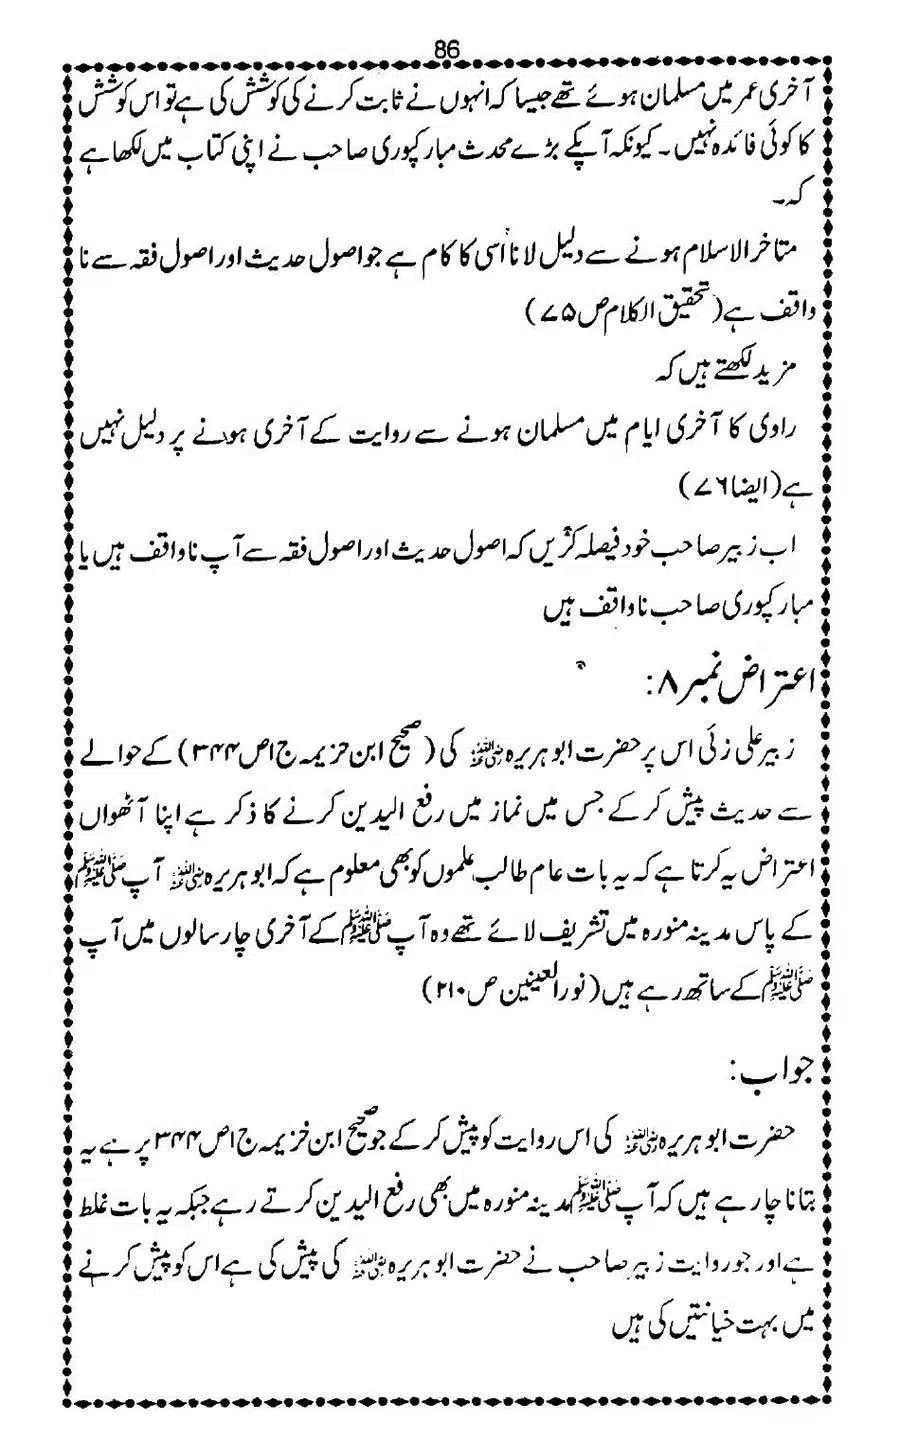 86
آخری عمر میں مسلمان ہوئے تھے جیسا کہ انہوں نے ثابت کرنے کی کوشش کی ہے تو اس کوشش
کا کوئی فائدہ نہیں ۔ کیونکہ آپکے بڑے محدث مبارکپوری صاحب نے اپنی کتاب میں لکھا ہے
کہ۔
متاخر الاسلام ہونے سے دلیل لانا اُسی کا کام ہے جو اصول حدیث اور اصول فقہ سے نا
واقف ہے (تحقیق الکلام ص ۷۵)
مزید لکھتے ہیں کہ
راوی کا آخری ایام میں مسلمان ہونے سے روایت کے آخری ہونے پر دلیل نہیں
ہے (ایضا ۷۶)
اب زبیر صاحب خود فیصلہ کریں کہ اصول حدیث اور اصول فقہ سے آپ ناواقف ہیں یا
مبارکپوری صاحب ناواقف ہیں
اعتراض نمبر ۸:
زبیر علی زئی اس پر حضرت ابو ہریرہ رضی اللہ عنہ کی (صحیح ابن خزیمہ ج۱ص ۳۴۴) کے حوالے
سے حدیث پیش کر کے جس میں نماز میں رفع الیدین کرنے کا ذکر ہے اپنا آٹھواں
اعتراض یہ کرتا ہے کہ یہ بات عام طالب علموں کو بھی معلوم ہے کہ ابو ہریرہ رضی اللہ عنہ آپ ﷺ
کے پاس مدینہ منورہ میں تشریف لائے تھے وہ آپ ﷺ کے آخری چار سالوں میں آپ
ﷺ کے ساتھ رہے ہیں (نور العینین ص ۲۱۰)
جواب:
حضرت ابو ہریرہ رضی اللہ عنہ کی اس روایت کو پیش کر کے جو صحیح ابن خزیمہ ج۱ص ۳۴۴ پر ہے یہ
بتانا چار ہے ہیں کہ آپ ﷺ مدینہ منورہ میں بھی رفع الیدین کرتے رہے جبکہ یہ بات غلط
ہے اور جو روایت زبیر صاحب نے حضرت ابو ہریرہ رضی اللہ عنہ کی پیش کی ہے اس کو پیش کرنے
میں بہت خیانتیں کی ہیں